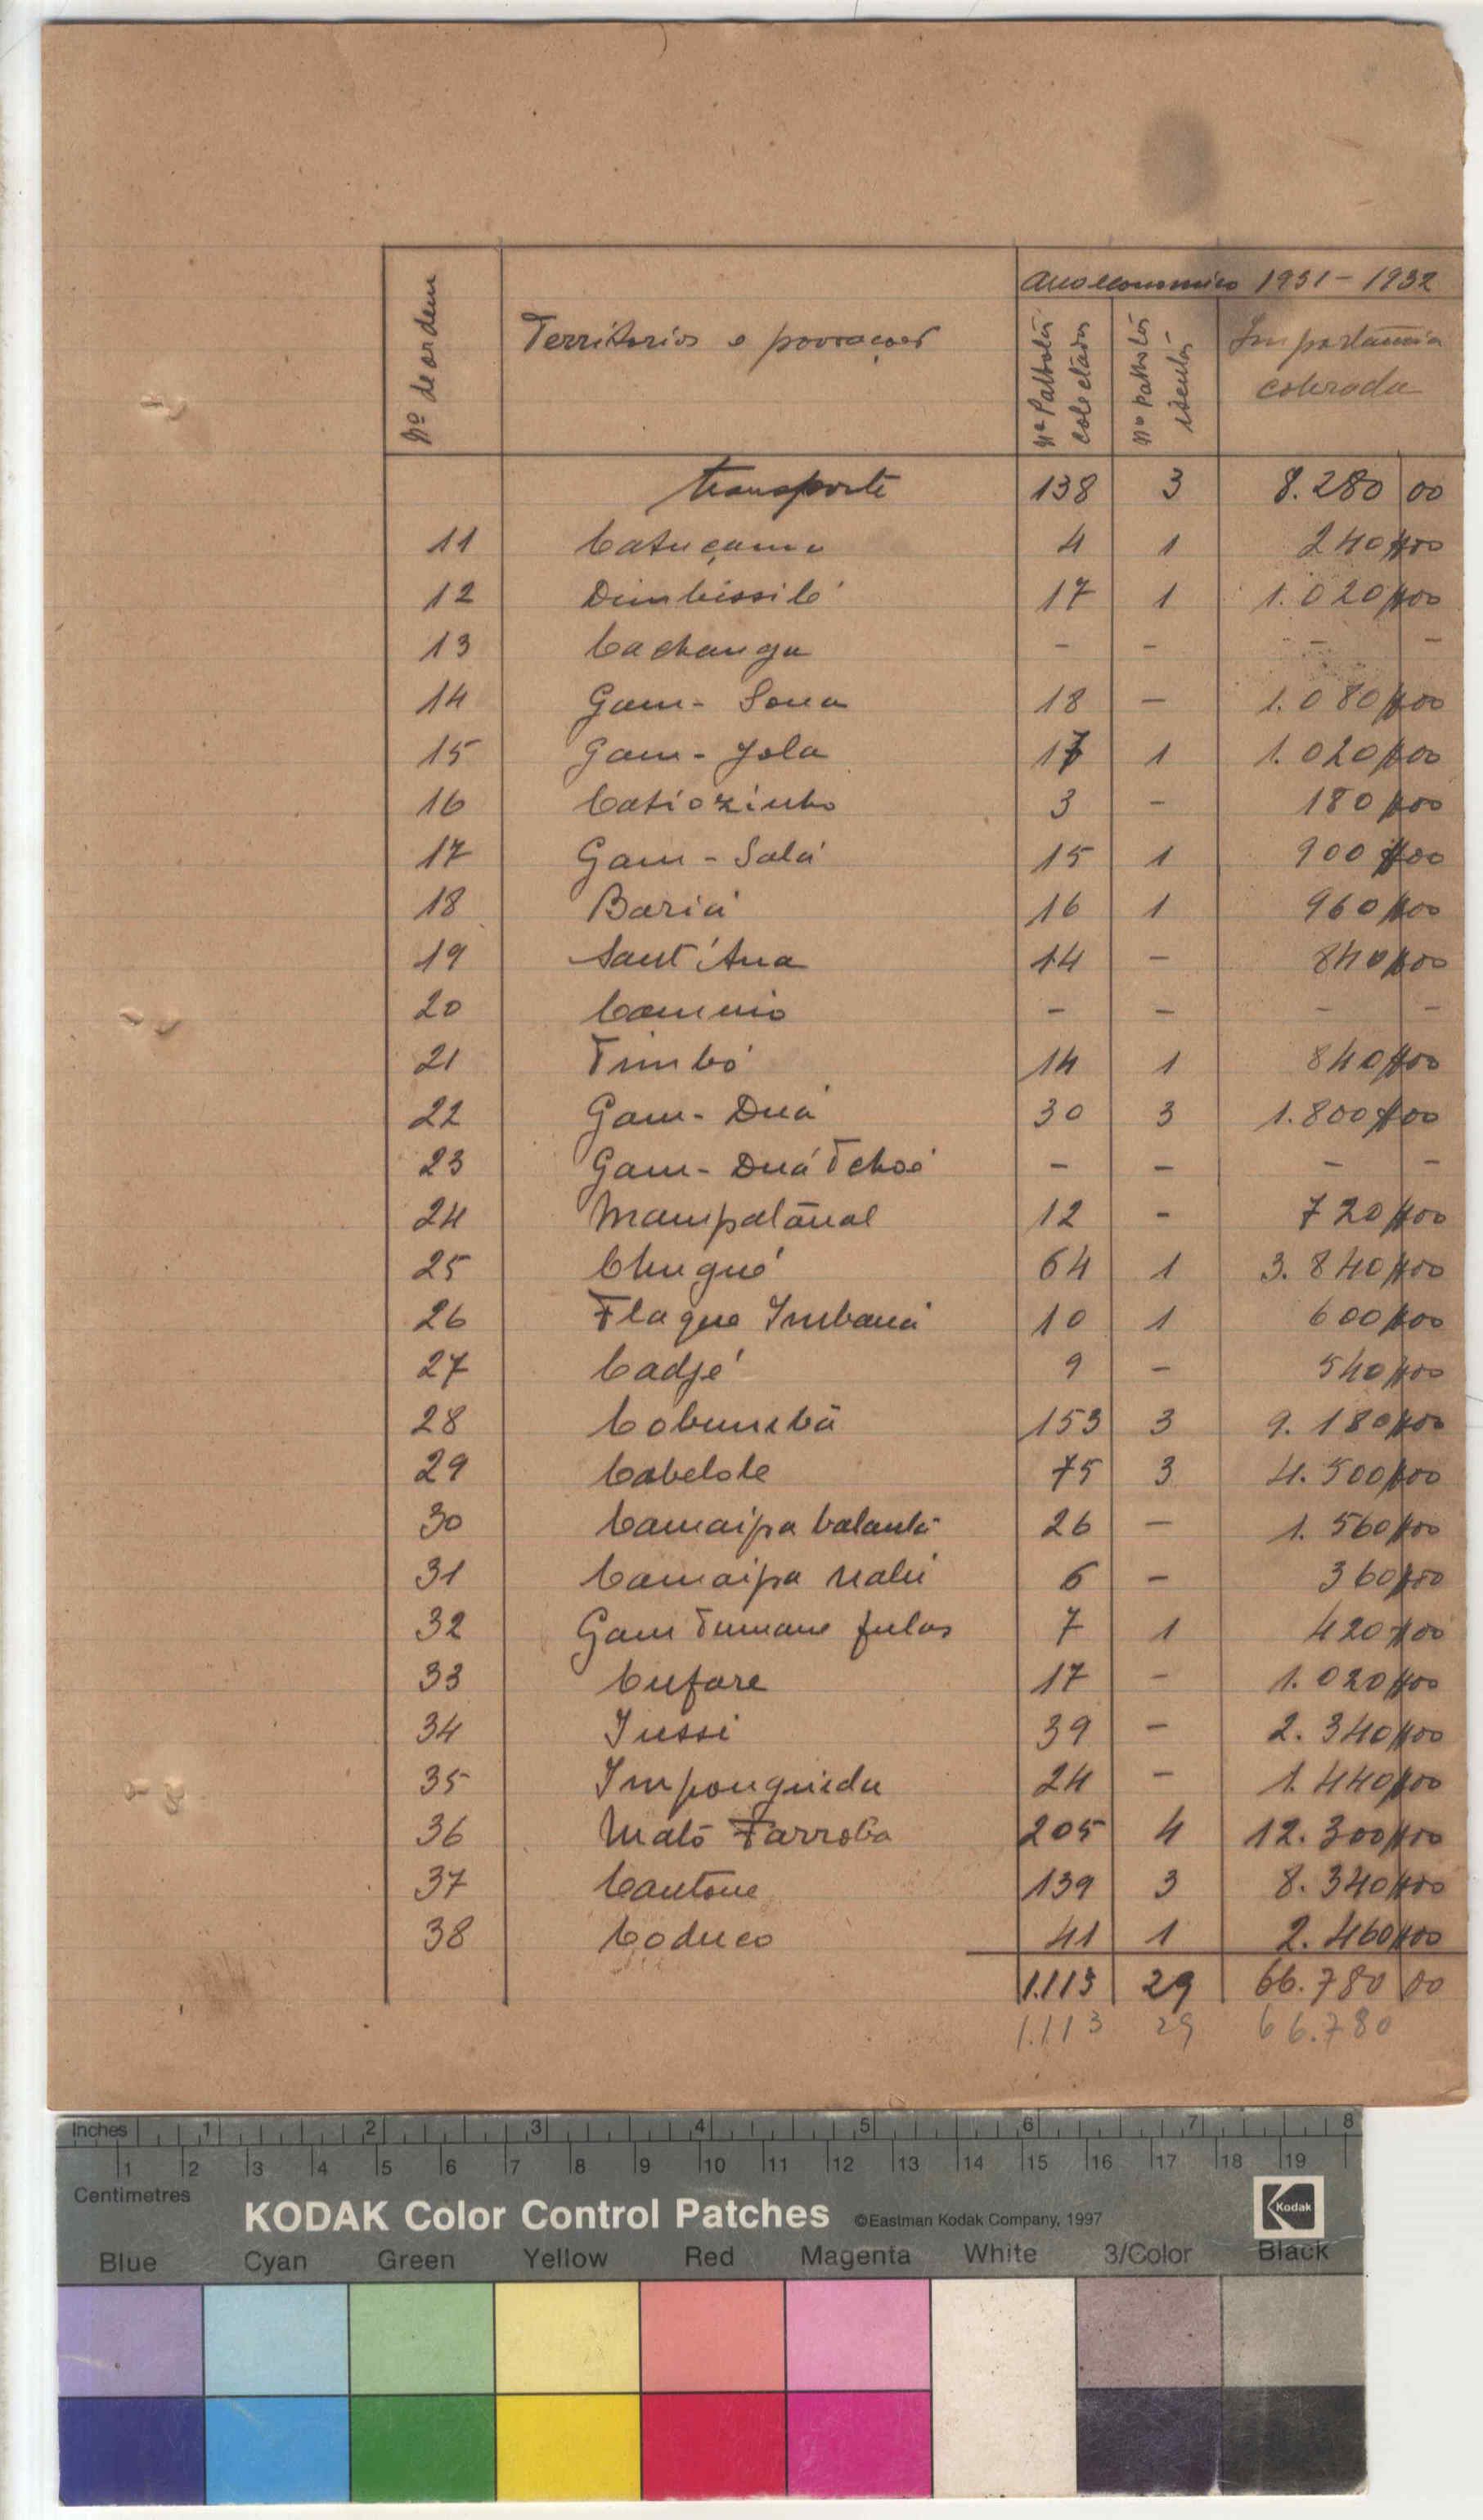 Nº de ordem
Territorios e povoações
Ano economico 1931-1932
Nº Palhotas colectadas
Nº palhotas isentas
Importancia cobrada
transporte 138 3 8.280 00
11 Catuçama 4 1 240$00
12 Dimbissilé 17 1 1.020$00
13 Cachanga - - - -
14 Gam-Sona 18 - 1.080$00
15 Gam-Jola 17 1 1.020$00
16 Catiozinho 3 - 180$00
17 Gam-Salá 15 1 900$00
18 Bariá 16 1 960$00
19 Sant'Ana 14 - 840$00
20 - - - -
21 Timbó 14 1 840$00
22 Gam-Duá 30 3 1.800$00
23 Gam-Duá Tchoé - - - -
24 Mampatánal 12 - 720$00
25 Chugué 64 1 3.840$00
26 Flaque Imbaná 10 1 600$00
27 Cadjé 9 - 540$00
28 153 3 9.180$00
29 Cabelole 75 3 4.500$00
30 Camaipa balanta 26 - 1.560$00
31 Camaipa nalú 6 - 360$00
32 Gam Tumane fulas 7 1 420$00
33 Cufare 17 - 1.020$00
34 Iussi 39 - 2.340$00
35 Imponguida 24 - 1.440$00
36 Mato Farroba 205 4 12.300$00
37 Cantone 139 3 8.340$00
38 Coduco 41 1 2.460$00
1.113 29 66.780 00
1.113 29 66.780
Inches 1 2 3 4 5 6 7 8
1 2 3 4 5 6 7 8 9 10 11 12 13 14 15 16 17 18 19
Centimetres
KODAK Color Control Patches ©Eastman Kodak Company, 1997 Kodak
Blue Cyan Green Yellow Red Magenta White 3/Color Black